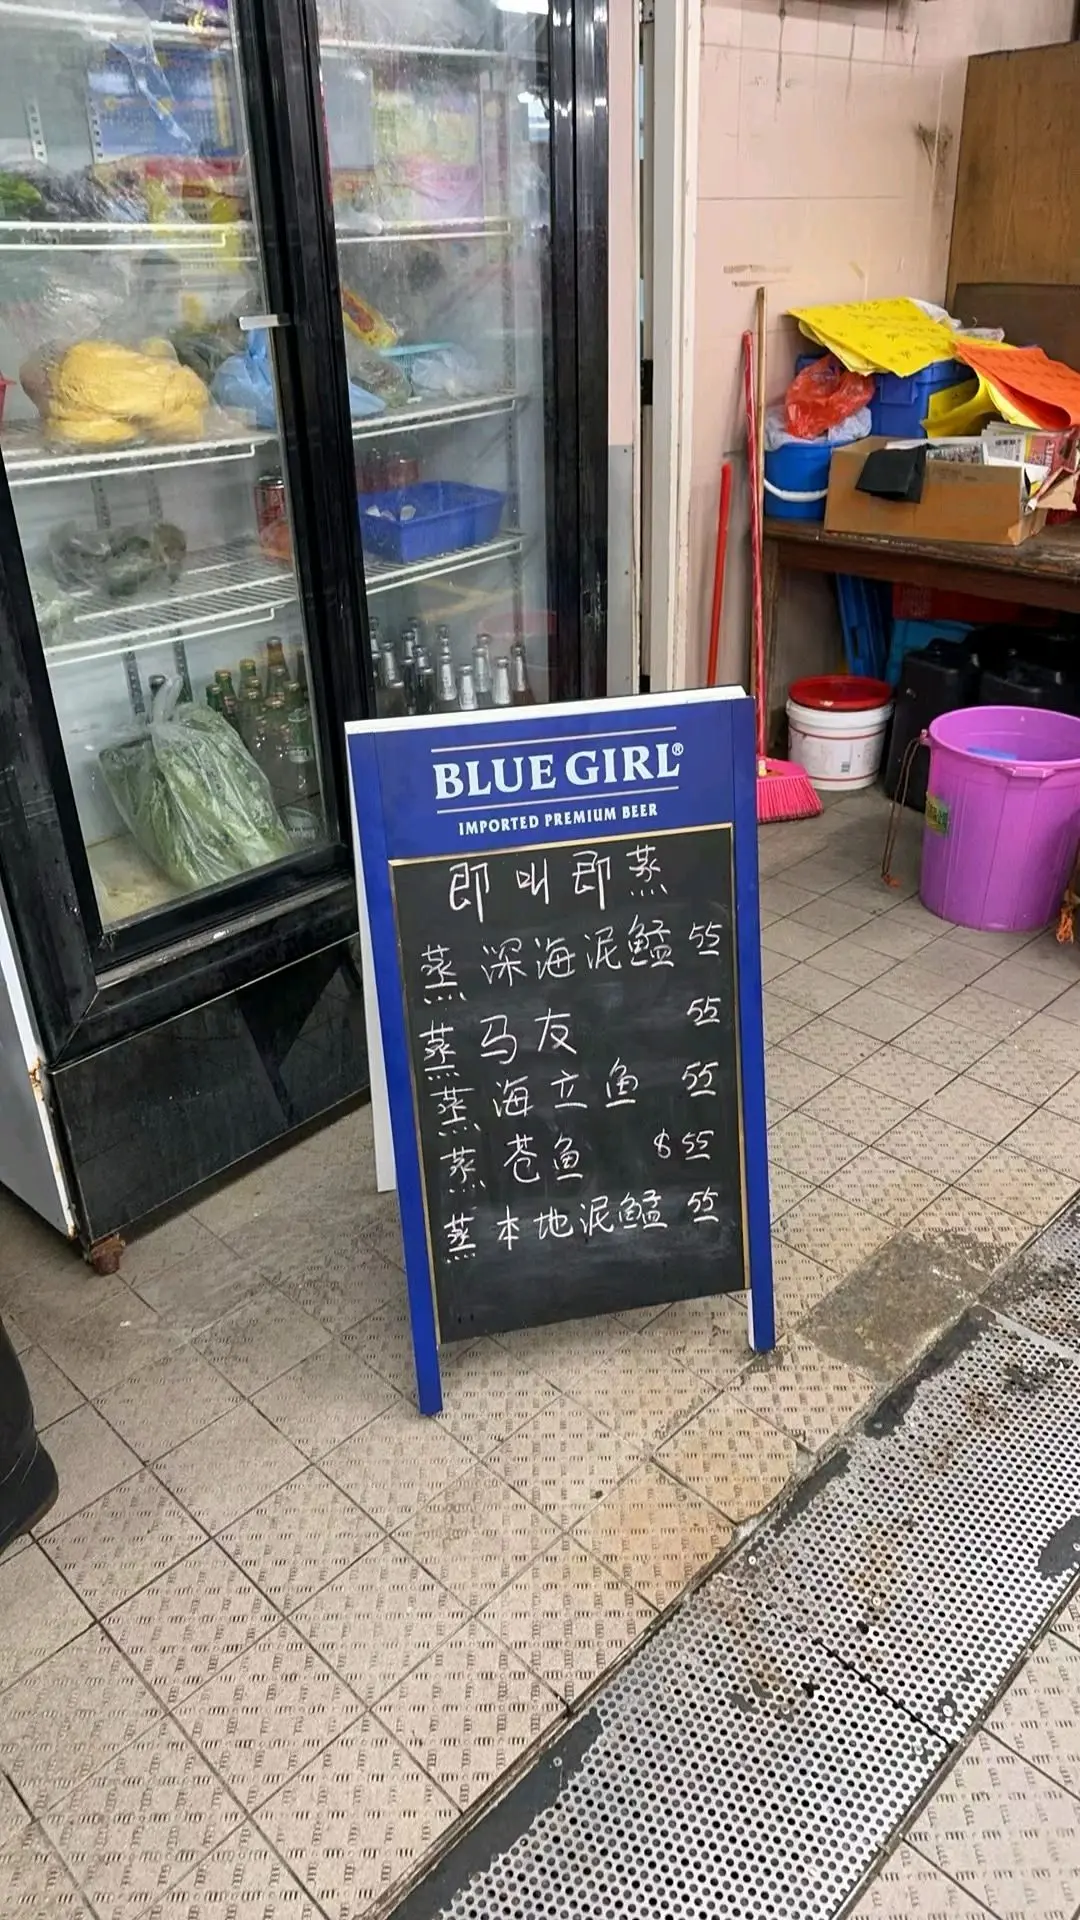 BLUE GIRL®
IMPORTED PREMIUM BEER
即叫即蒸
蒸深海泥鯭 55
蒸马友 55
蒸海立鱼 55
蒸苍鱼 $55
蒸本地泥鯭 55